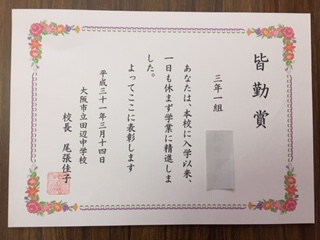 皆勤賞
三年一組
あなたは、本校に入学以来、
一日も休まず学業に精進しま
した。
よってここに表彰します
平成三十一年三月十四日
大阪市立田辺中学校
校長 尾張佳子